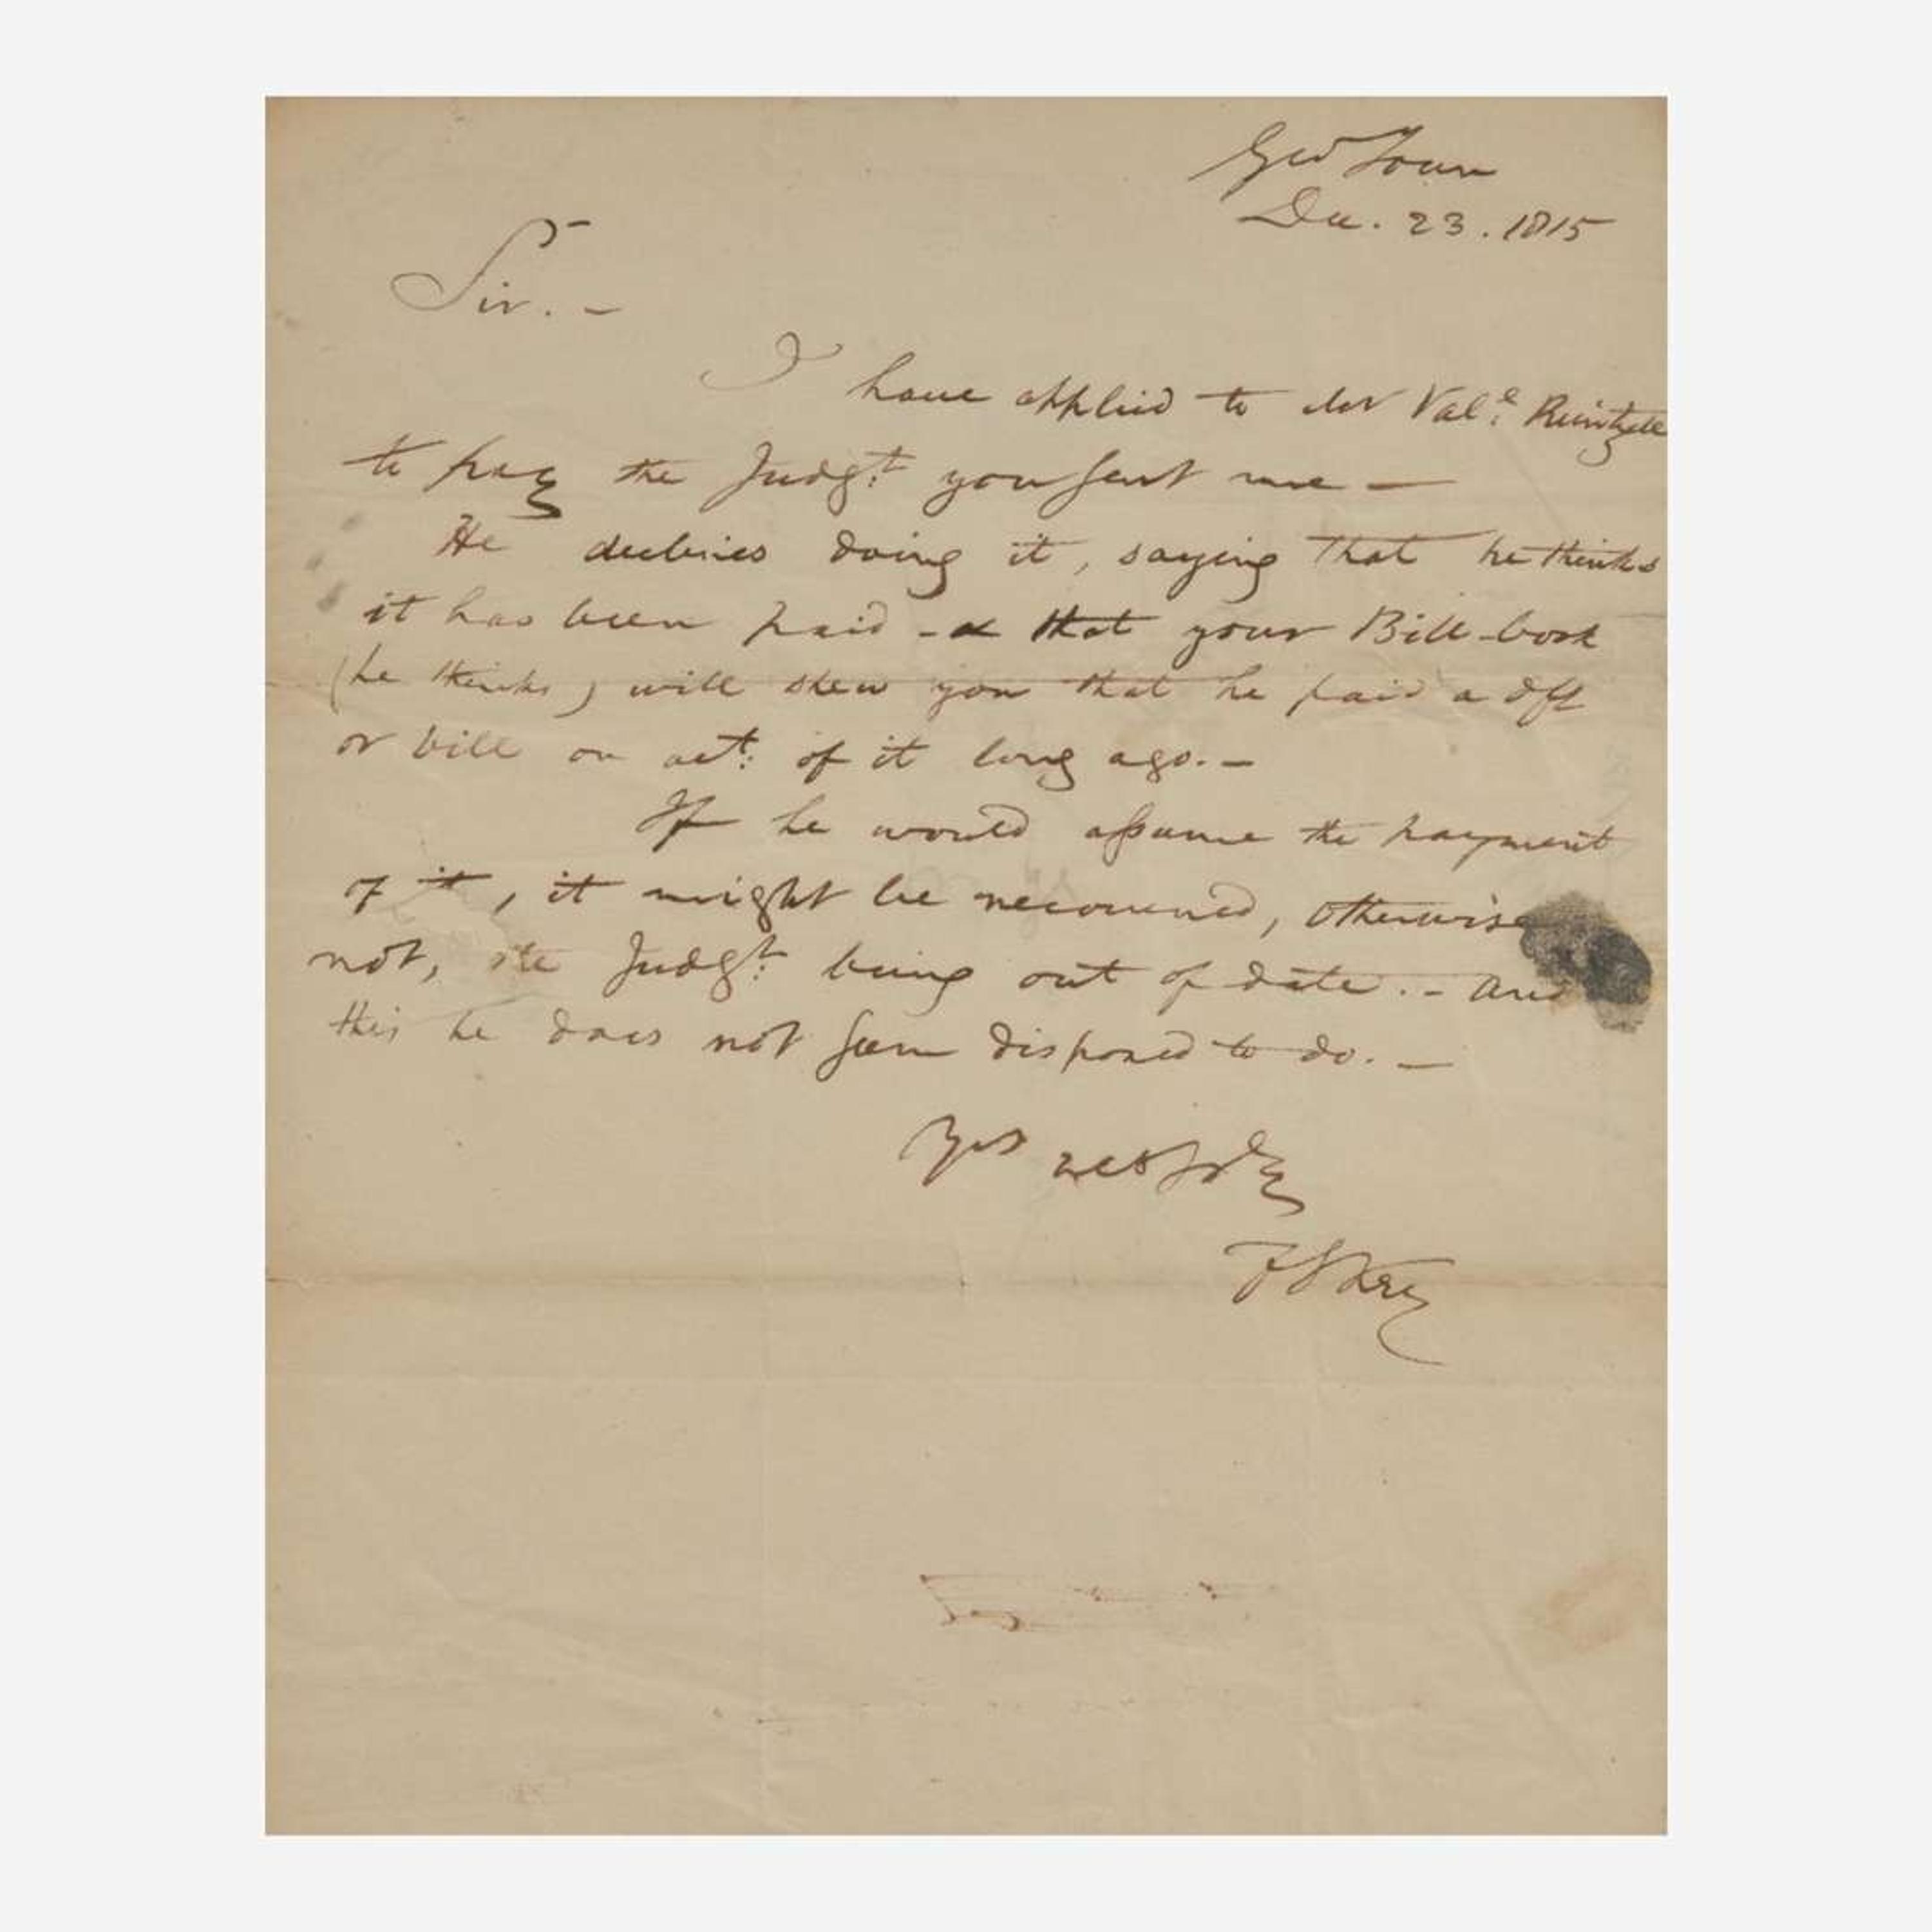 Geo Town
Dec. 23. 1815
Sir. -
I have applied to Mr Val.e Reintzell
to pay the Judg.t you sent me -
He declines doing it, saying that he thinks
it has been paid - & that your Bill-book
(he thinks) will shew you that he paid a dft
or bill on act: of it long ago. -
If he would assume the payment
of it, it might be recovered, otherwise
not, the Judg.t being out of date. - and
this he does not seem disposed to do. -
Yr ob
F S Key